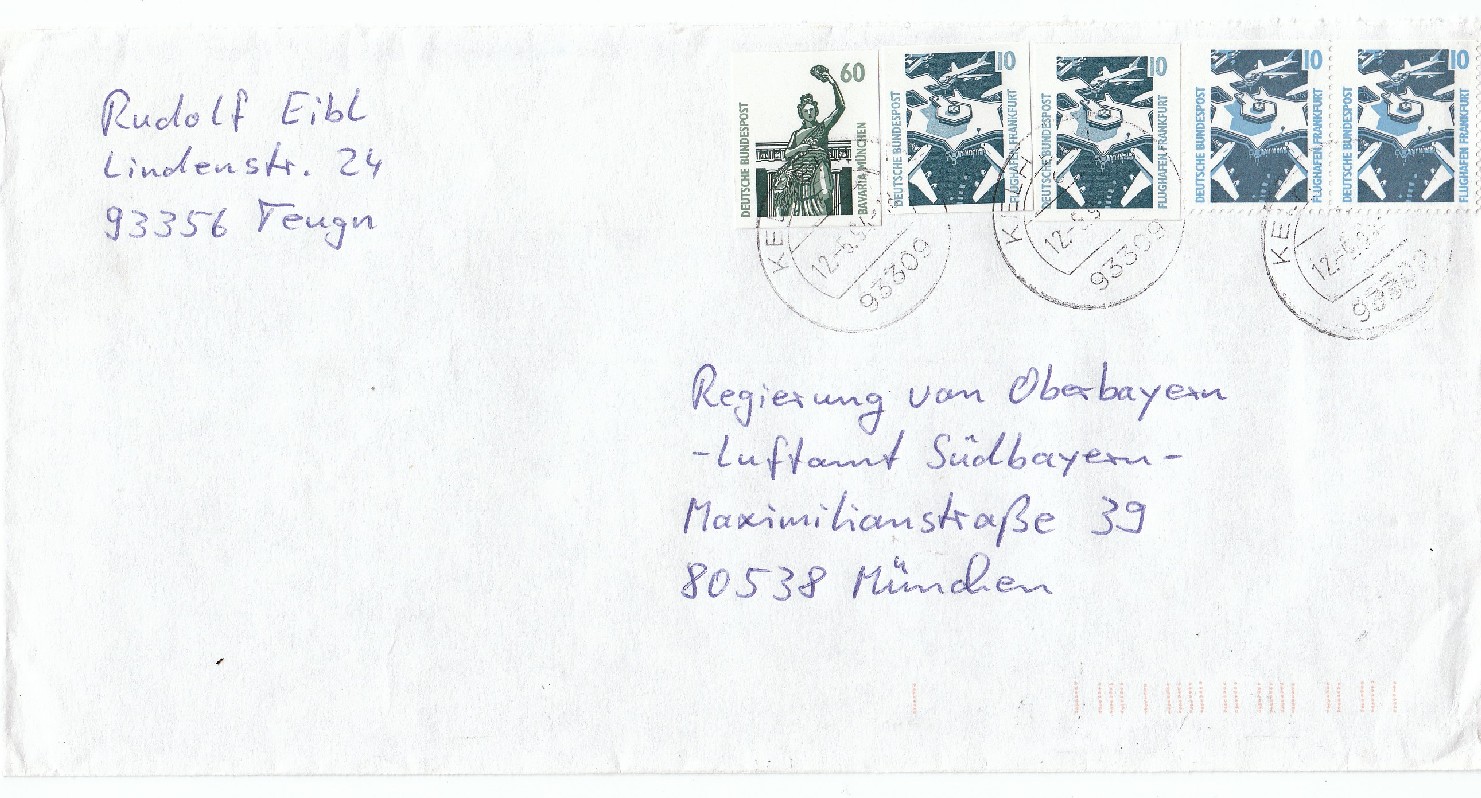 Rudolf Eibl
Lindenstr. 24
93356 Teugn
60
DEUTSCHE BUNDESPOST
BAVARIA MÜNCHEN
10
DEUTSCHE BUNDESPOST
FLUGHAFEN FRANKFURT
10
DEUTSCHE BUNDESPOST
FLUGHAFEN FRANKFURT
10
DEUTSCHE BUNDESPOST
FLUGHAFEN FRANKFURT
10
DEUTSCHE BUNDESPOST
FLUGHAFEN FRANKFURT
93309
93309
93309
Regierung von Oberbayern
-Luftamt Südbayern-
Maximilianstraße 39
80538 München